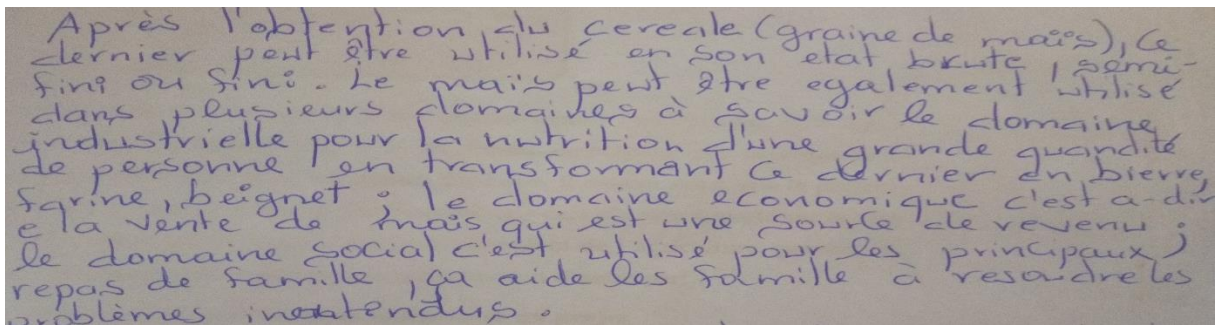 Après l'obtention du cereale (graine de maïs), ce
dernier peut être utilisé en son etat brute, semi-
fini ou fini. Le maïs peut être egalement utilisé
dans plusieurs domaines à savoir le domaine
industrielle pour la nutrition d'une grande quandité
de personne en transformant ce dernier en bierre,
farine, beignet ; le domaine economique c'est a-dir
e la vente de maïs qui est une source de revenu ;
le domaine social c'est utilisé pour les principaux
repas de famille, ça aide les famille à resoudre les
problèmes inattendus.